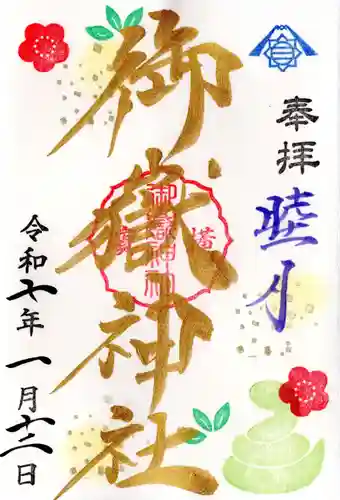 奉拝
睦月
御嶽神社
令和七年一月十二日